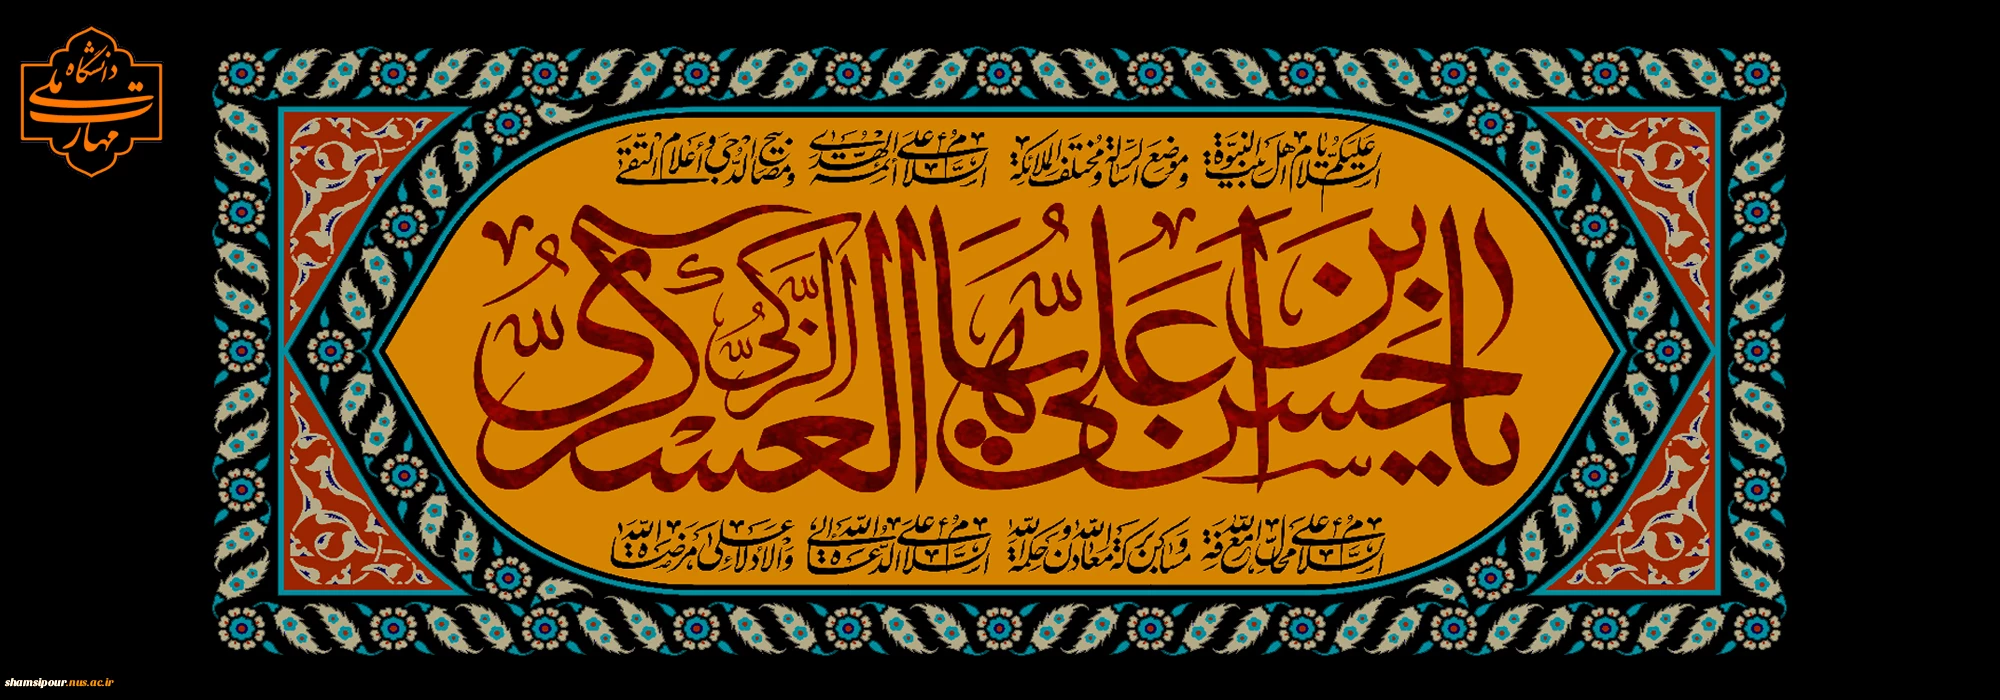 دانشگاه ملی مهارت
السلام علیکم یا اهل بیت النبوة وموضع الرسالة ومختلف الملائکة السلام علی أئمة الهدی ومصابیح الدجی وأعلام التقی
یا حسن بن علی ایها الزکی العسکری
السلام علی محال معرفة الله ومساکن برکة الله ومعادن حکمة الله السلام علی الدعاة الی الله والادلاء علی مرضات الله
shamsipour.nus.ac.ir